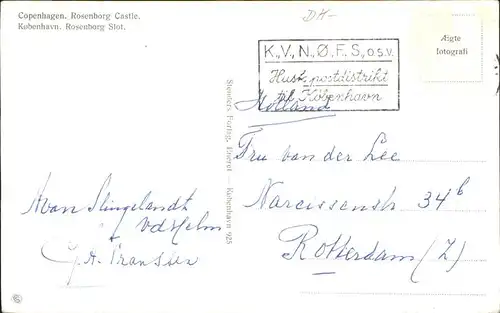 Copenhagen. Rosenborg Castle.
København. Rosenborg Slot.
DK-
K., V., N., Ø., F. S., O.S.V.
Husk postdistrikt
til København
Ægte
fotografi
Stenders Forlag. Eneret København 925
Holland
Fru van der Lee
Narcissenstr 34b
Rotterdam (Z)
A van Slingelandt
vd Helm
G. A. Franssen